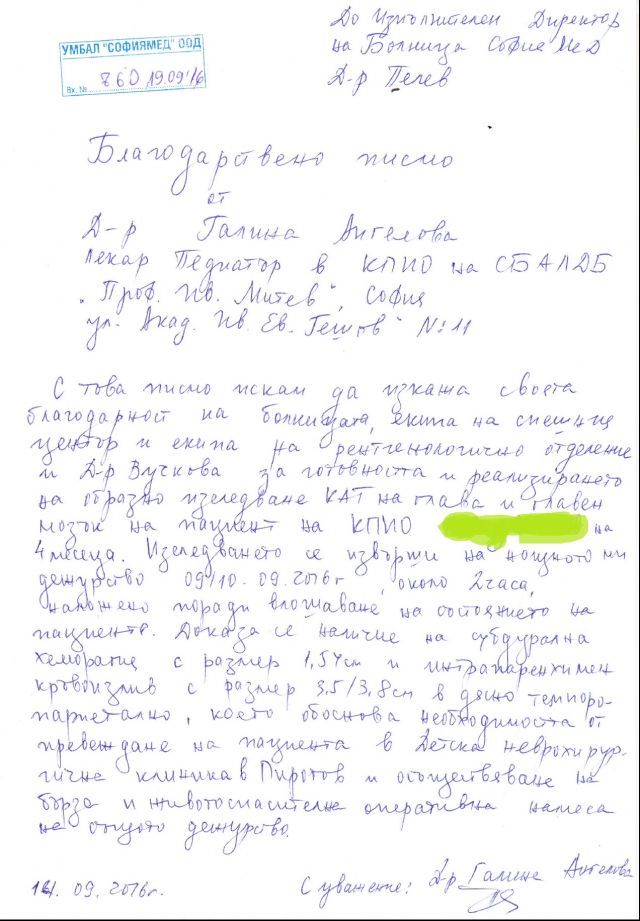 УМБАЛ "СОФИЯМЕД" ООД
Вх. № 760 19.09.16
До Изпълнителен Директор
на Болница СофиеМеD
Д-р Печев
Благодарствено писмо
от
Д-р Галина Ангелова
лекар Педиатър в КПИО на СБАЛДБ
„Проф. Ив. Митев", София
ул. Акад. Ив. Ев. Гешов" №11
С това писмо искам да изкажа своята
благодарност на болницата, екипа на спешния
център и екипа на рентгенологично отделение
и Д-р Вучкова за готовността и реализирането
на образно изследване КАТ на глава и главен
мозък на пациент на КПИО на
4 месеца. Изследването се извърши на нощното ми
дежурство 09/10.09.2016г, около 2 часа,
наложено поради влошаване на състоянието на
пациента. Доказа се наличие на субдурална
хеморагия с размер 1,54см и интрапаренхимен
кръвоизлив с размер 3,5/3,8см в дясно темпоро-
париетално, което обоснова необходимостта от
превеждане на пациента в Детска неврохирур-
гична клиника в Пирогов и осъществяване на
бърза и животоспасителна оперативна намеса
на същото дежурство.
14.09.2016г. С уважение: Д-р Галина Ангелова